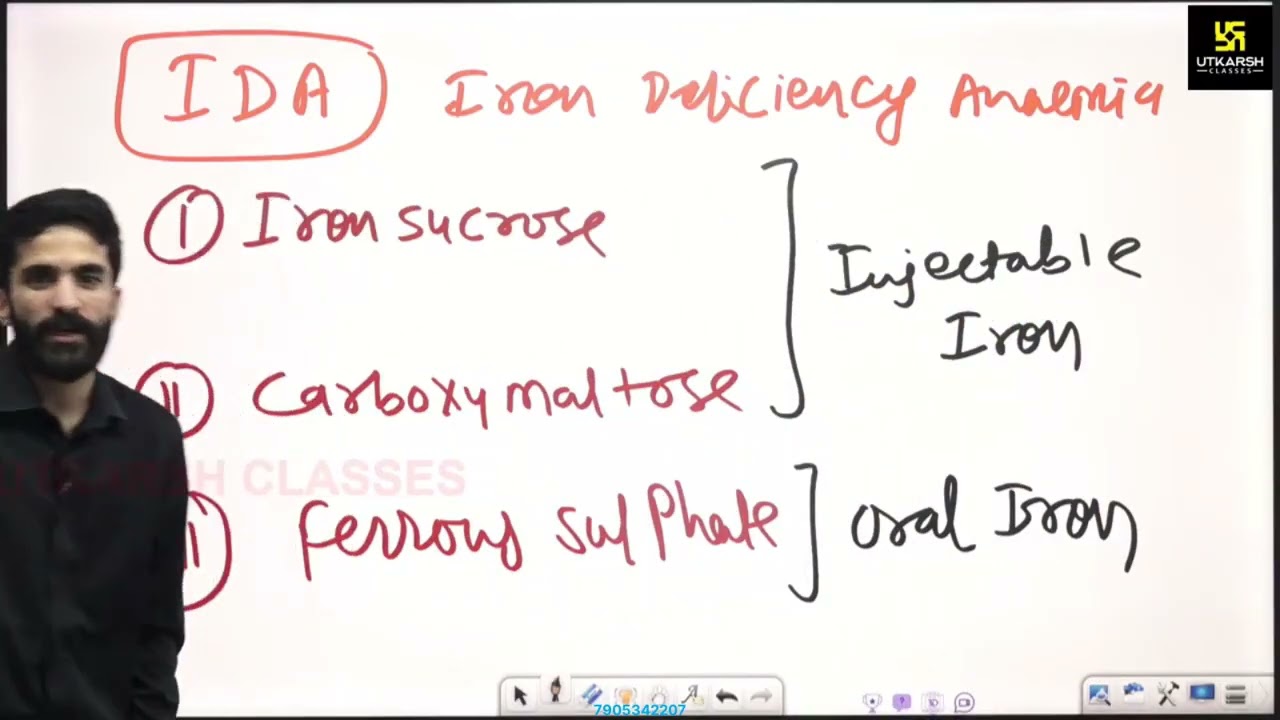 UTKARSH
CLASSES
IDA Iron Deficiency Anaemia
I Iron sucrose
Injectable
Iron
II Carboxymaltose
UTKARSH CLASSES
Ferrous sulphate oral Iron
7905342207